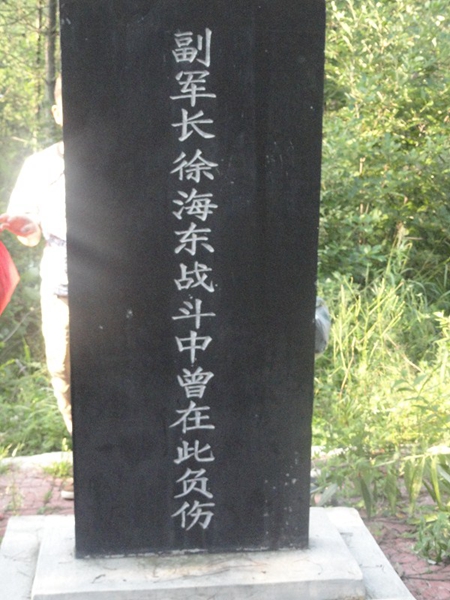 副军长徐海东战斗中曾在此负伤